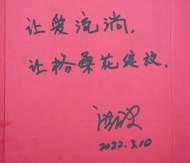 让爱流淌,
让格桑花绽放.
2022.3.10